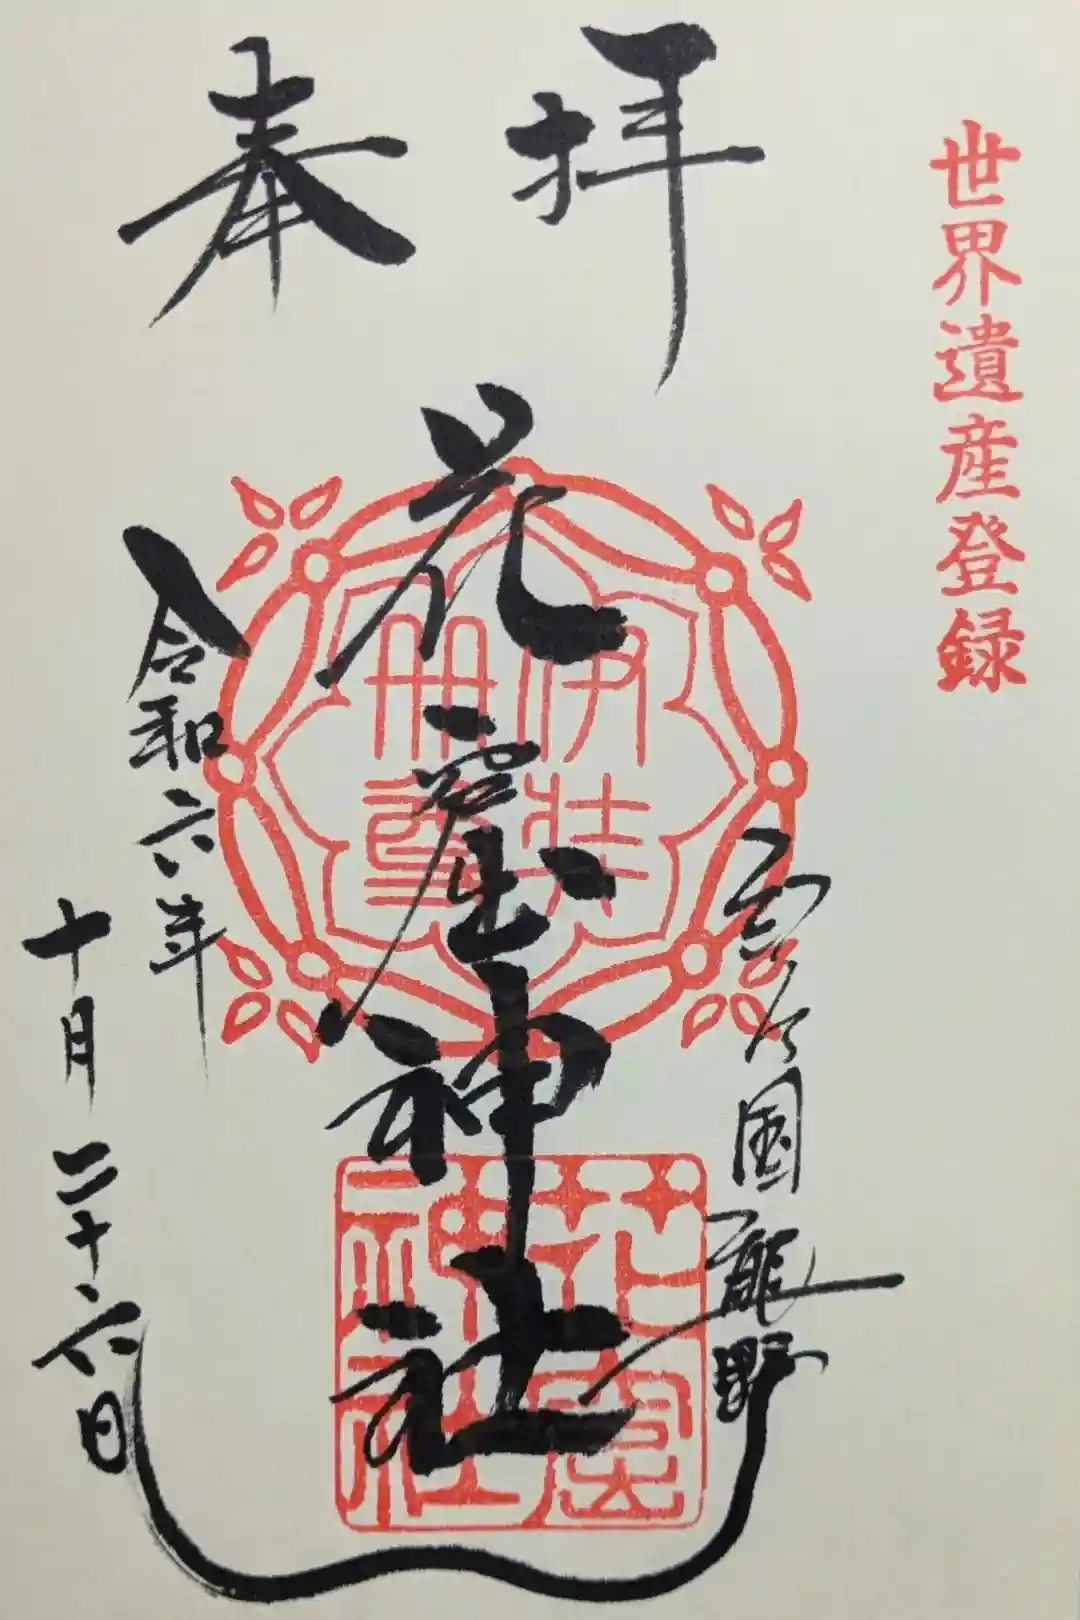 世界遺産登録
奉拝
国熊野
花窟神社
伊弉冊尊
花窟神社
令和六年
十月二十六日